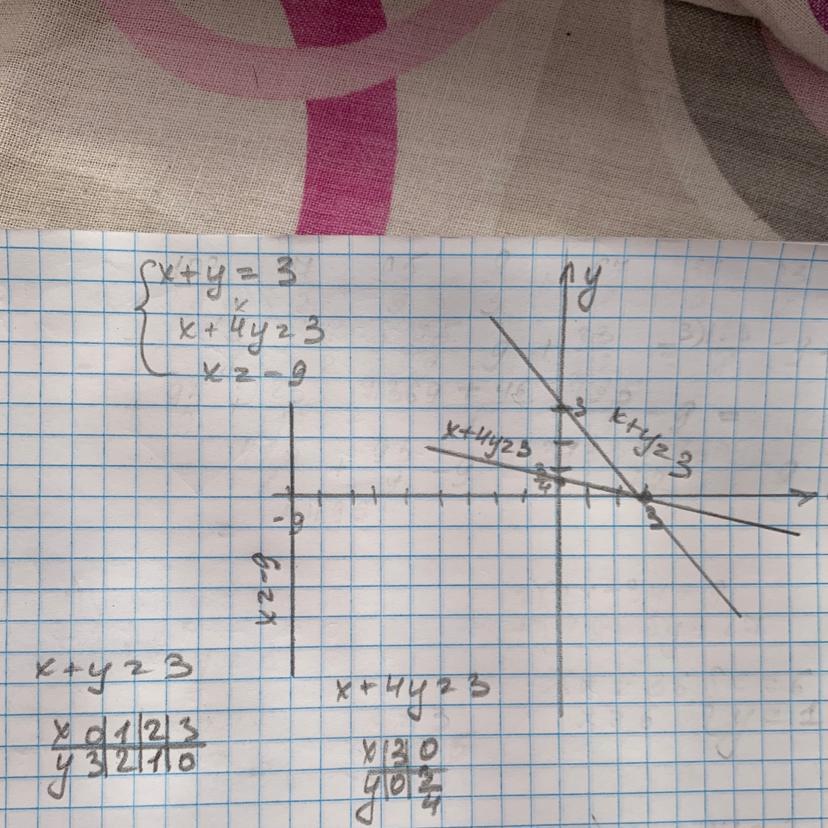 x+y=3
x+4y=3
x=-9
y
3
x+y=3
x+4y=3
3/4
-9
3
x=-9
x+y=3
x 0 1 2 3
y 3 2 1 0
x+4y=3
x 3 0
y 0 3/4